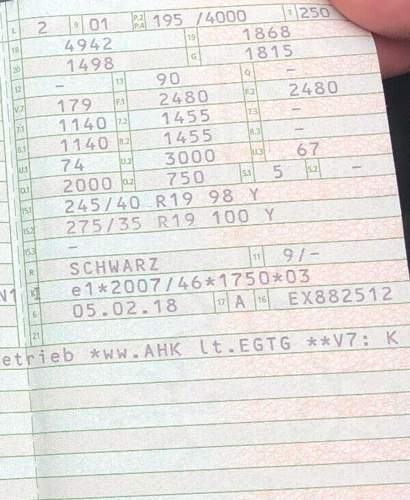 L 2 9 01 P.2 P.4 195 /4000 T 250
18 4942 19 1868
20 1498 G 1815
12 - 13 90 Q -
V.7 179 F.1 2480 F.2 2480
7.1 1140 7.2 1455 7.3 -
8.1 1140 8.2 1455 8.3 -
U.1 74 U.2 3000 U.3 67
O.1 2000 O.2 750 S.1 5 S.2 -
15.1 245/40 R19 98 Y
15.2 275/35 R19 100 Y
15.3 -
R SCHWARZ 11 9/-
K e1*2007/46*1750*03
6 05.02.18 17 A 16 EX882512
21
etrieb *ww.AHK lt.EGTG **V7: K